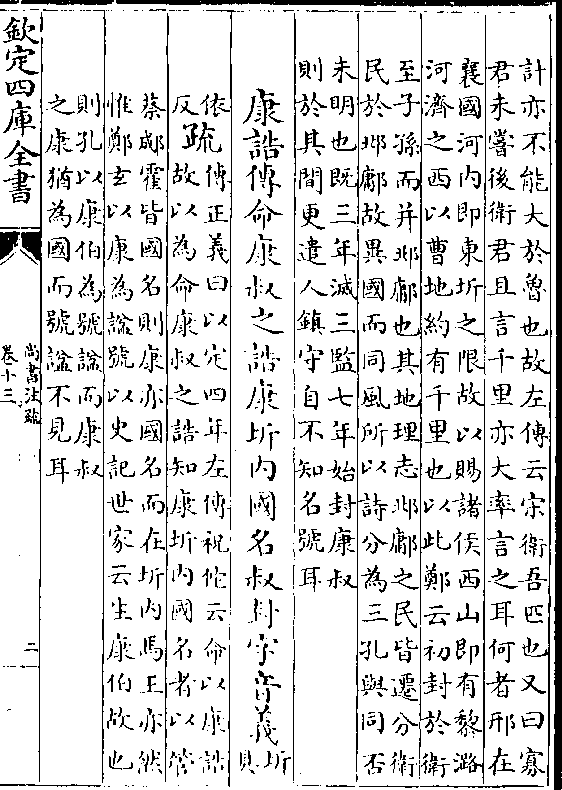 計亦不能大於魯也故左傳云宋衛吾匹也又曰寡
君未嘗後衛君且言千里亦大率言之耳何者邢在
襄國河内即東圻之限故以賜諸侯西山即有黎潞
河濟之西以曹地約有千里也以此鄭云初封於衛
至子孫而并邶鄘也其地理志邶鄘之民皆遷分衛
民於邶鄘故異國而同風所以詩分為三孔與同否
未明也既三年滅三監七年始封康叔
則於其間更遣人鎮守自不知名號耳
康誥傳命康叔之誥康圻内國名叔封字音義圻
依
反
疏
傳正義曰以定四年左傳祝佗云命以康誥
故以為命康叔之誥知康圻内國名者以管
蔡郕霍皆國名則康亦國名而在圻内馬王亦然
惟鄭玄以康為諡號以史記世家云生康伯故也
則孔以康伯為號諡而康叔
之康猶為國而號諡不見耳
欽定四庫全書
尚書注疏
卷十三
二